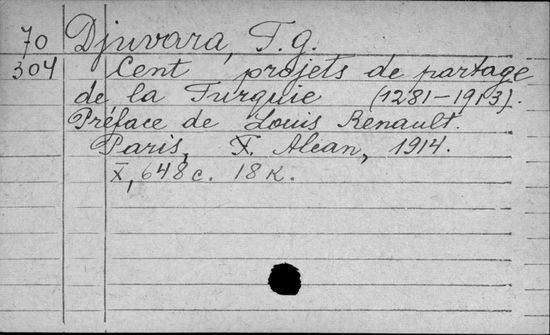 70 Djuvara, T. G.
304 Cent projets de partage
de la Turquie (1281-1913).
Préface de Louis Renault.
Paris, F. Alcan, 1914.
X, 648 c. 18 к.